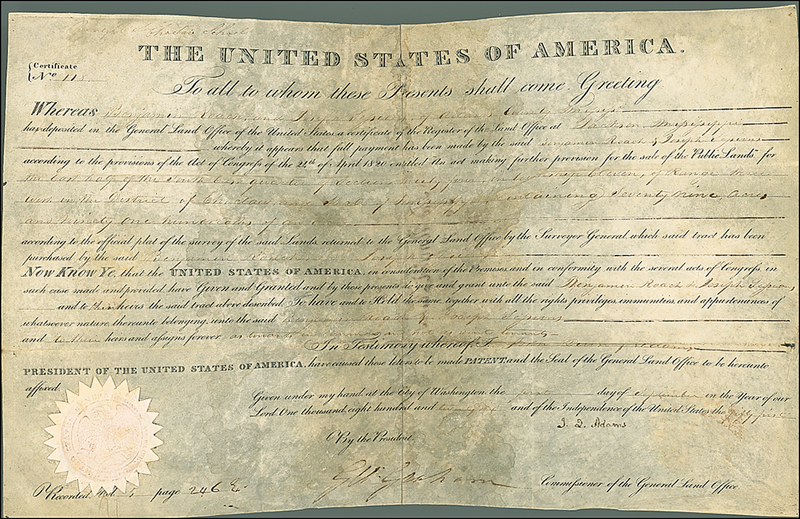 THE UNITED STATES OF AMERICA.
{Certificate
No 118
To all to whom these Presents shall come, Greeting
Whereas Benjamin Roach and Joseph
has deposited in the General Land Office of the United States a certificate of the Register of the Land Office at Jackson Mississippi
whereby it appears that full payment has been made by the said Benjamin Roach & Joseph
according to the provisions of the Act of Congress of the 24th of April 1820 entitled "An act making further provision for the sale of the Public Lands" for
the East half of the South East quarter of section twenty four in township eleven, of Range three
West in the District of Choctaw and State of Mississippi Containing Seventy nine Acres
and ninety one hundredths of an acre
according to the official plat of the survey of the said Lands, returned to the General Land Office by the Surveyor General, which said tract has been
purchased by the said Benjamin Roach
Now Know Ye, that the UNITED STATES OF AMERICA, in consideration of the Premises, and in conformity with the several acts of Congress, in
such case made and provided, have Given and Granted, and by these presents do give and grant unto the said Benjamin Roach & Joseph
and to their heirs the said tract above described: To have and to Hold the same, together with all the rights, privileges, immunities, and appurtenances of
whatsoever nature, thereunto belonging, unto the said Roach & Joseph
and to their heirs and assigns forever, as tenants in common
In Testimony whereof, I John Quincy Adams
PRESIDENT OF THE UNITED STATES OF AMERICA, have caused these letters to be made PATENT, and the Seal of the General Land Office to be hereunto
affixed.
Given under my hand, at the City of Washington, the first day of September in the Year of our
Lord, One thousand, eight hundred and twenty six and of the Independence of the United States the fifty first
J. Q. Adams
By the President
Geo Graham
Commissioner of the General Land Office
Recorded, Vol 5 page 246